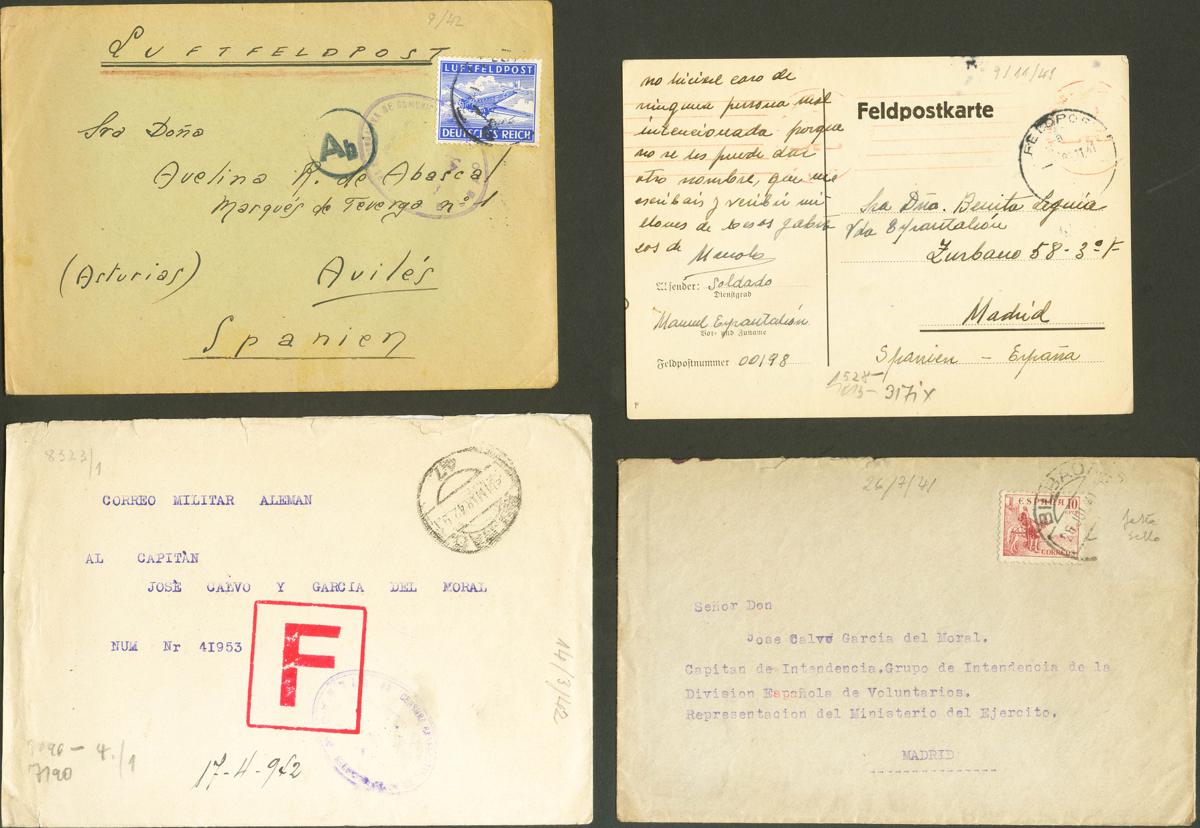 9/42
LUFTFELDPOST
LUFTFELDPOST
DEUTSCHES REICH
Ab
Sra Doña
Avelina R. de Abascal
Marqués de Teverga nº 1
(Asturias) Avilés
Spanien
9/11/41
no hicisel caso de
ninguna persona mal
intencionada porque
no se les puede dar
otro nombre, que me
escribais y recibir mi
llones de besos y abra
zos de
Manolo
Absender: Soldado
Dienstgrad
Manuel Expantalión
Vor- und Zuname
Feldpostnummer 00198
Feldpostkarte
FELDPOST
Sra Dña. Benita Leguía
Vda Expantalión
Zurbano 58-3º F
Madrid
Spanien - España
317ix
8323/1
CORREO MILITAR ALEMAN
AL CAPITAN
JOSE CALVO Y GARCIA DEL MORAL
NUM Nr 41953
F
14/3/42
7190
17-4-942
26/7/41
ESPAÑA 10
CORREOS
BILBAO
falta
sello
Señor Don
Jose Calvo Garcia del Moral.
Capitan de Intendencia.Grupo de Intendencia de la
Division Española de Voluntarios.
Representacion del Ministerio del Ejercito.
MADRID